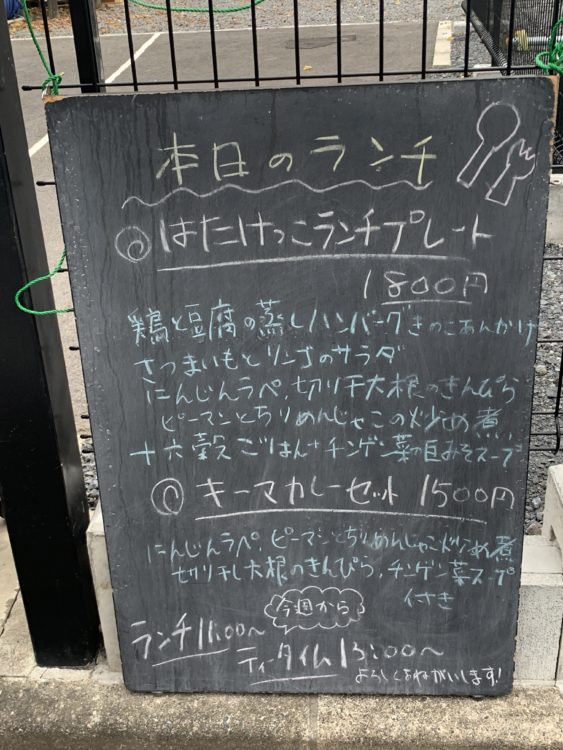 本日のランチ
◎はたけっこランチプレート
1800円
鶏と豆腐の蒸しハンバーグきのこあんかけ
さつまいもとリンゴのサラダ
にんじんラペ、切り干大根のきんぴら
ピーマンとちりめんじゃこの炒め煮
十六穀ごはん+チンゲン菜の白みそスープ
◎キーマカレーセット 1500円
にんじんラペ、ピーマンとちりめんじゃこ炒め煮
切り干し大根のきんぴら、チンゲン菜スープ
付き
今週から
ランチ11:00〜
ティータイム13:00〜
よろしくおねがいします!